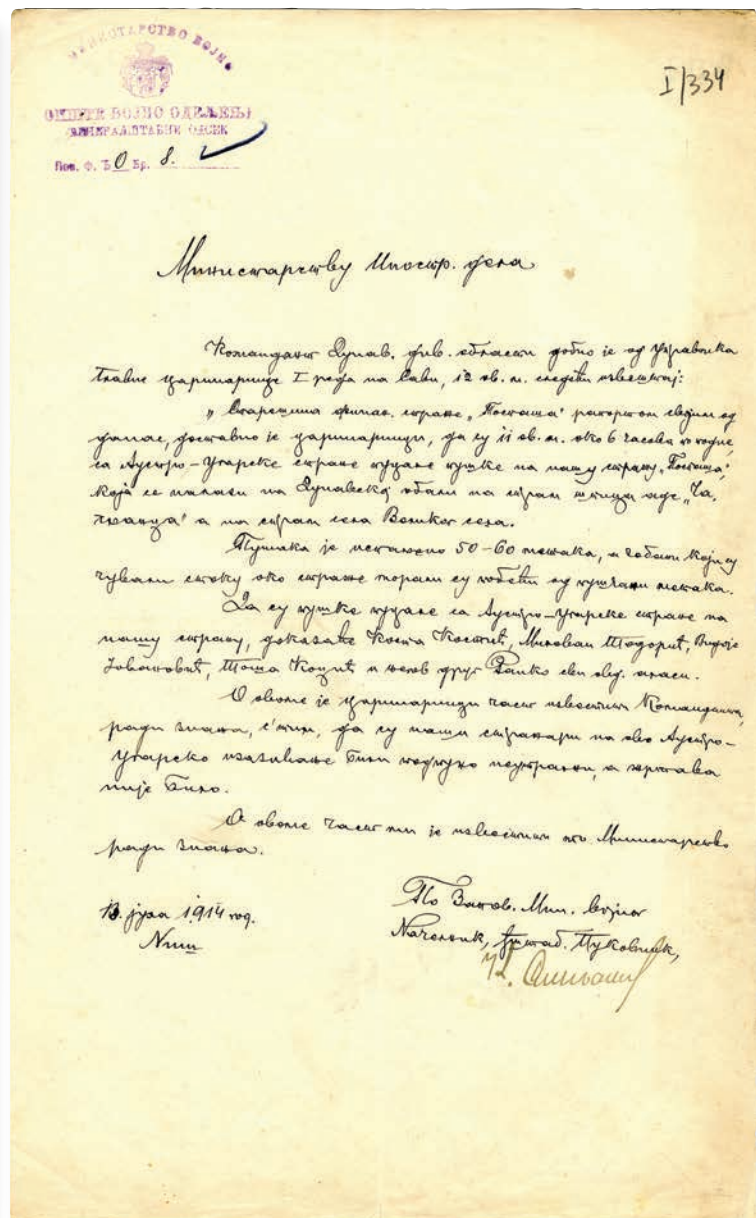 МИНИСТАРСТВО ВОЈНО
ОПШТЕ ВОЈНО ОДЕЉЕЊЕ
ЂЕНЕРАЛШТАБНИ ОДСЕК
Пов. Ф. Ђ О Бр. 8.
I/334
Министарству Иностр. дела
Командант Дунав. див. области добио је од Управника
главне царинарнице I реда на Сави, 12 ов. м. следећи извештај:
„Старешина финанс. страже „Посташа“ рапортом својим од
данас, доставио је царинарници, да су 11 ов. м. око 6 часова по подне,
са Аустро-Угарске стране пуцале пушке на нашу стражу „Посташа“,
која се налази на Дунавској обали на спрам аде
а на спрам села Великог села.
Пушака је испаљено 50-60 метака, и чобани који су
чували стоку око страже морали су побећи од пушчани метака.
Да су пушке пуцале са Аустро-Угарске стране на
нашу стражу, доказаће Коста Костић, Милован Тодорић,
Јовановић, Тоша и његов друг Ранко сви овд. аласи.
О овоме је царинарници част известити Команданта,
ради знања, с'тим, да су наши стражари на ово Аустро-
Угарско изазивање били потпуно неутрални, а жртава
није било.
О овоме част ми је известити то Министарство
ради знања.
13. јула 1914 год.
Ниш
По Запов. Мин. војног
Начелник, ђштаб. Пуковник,